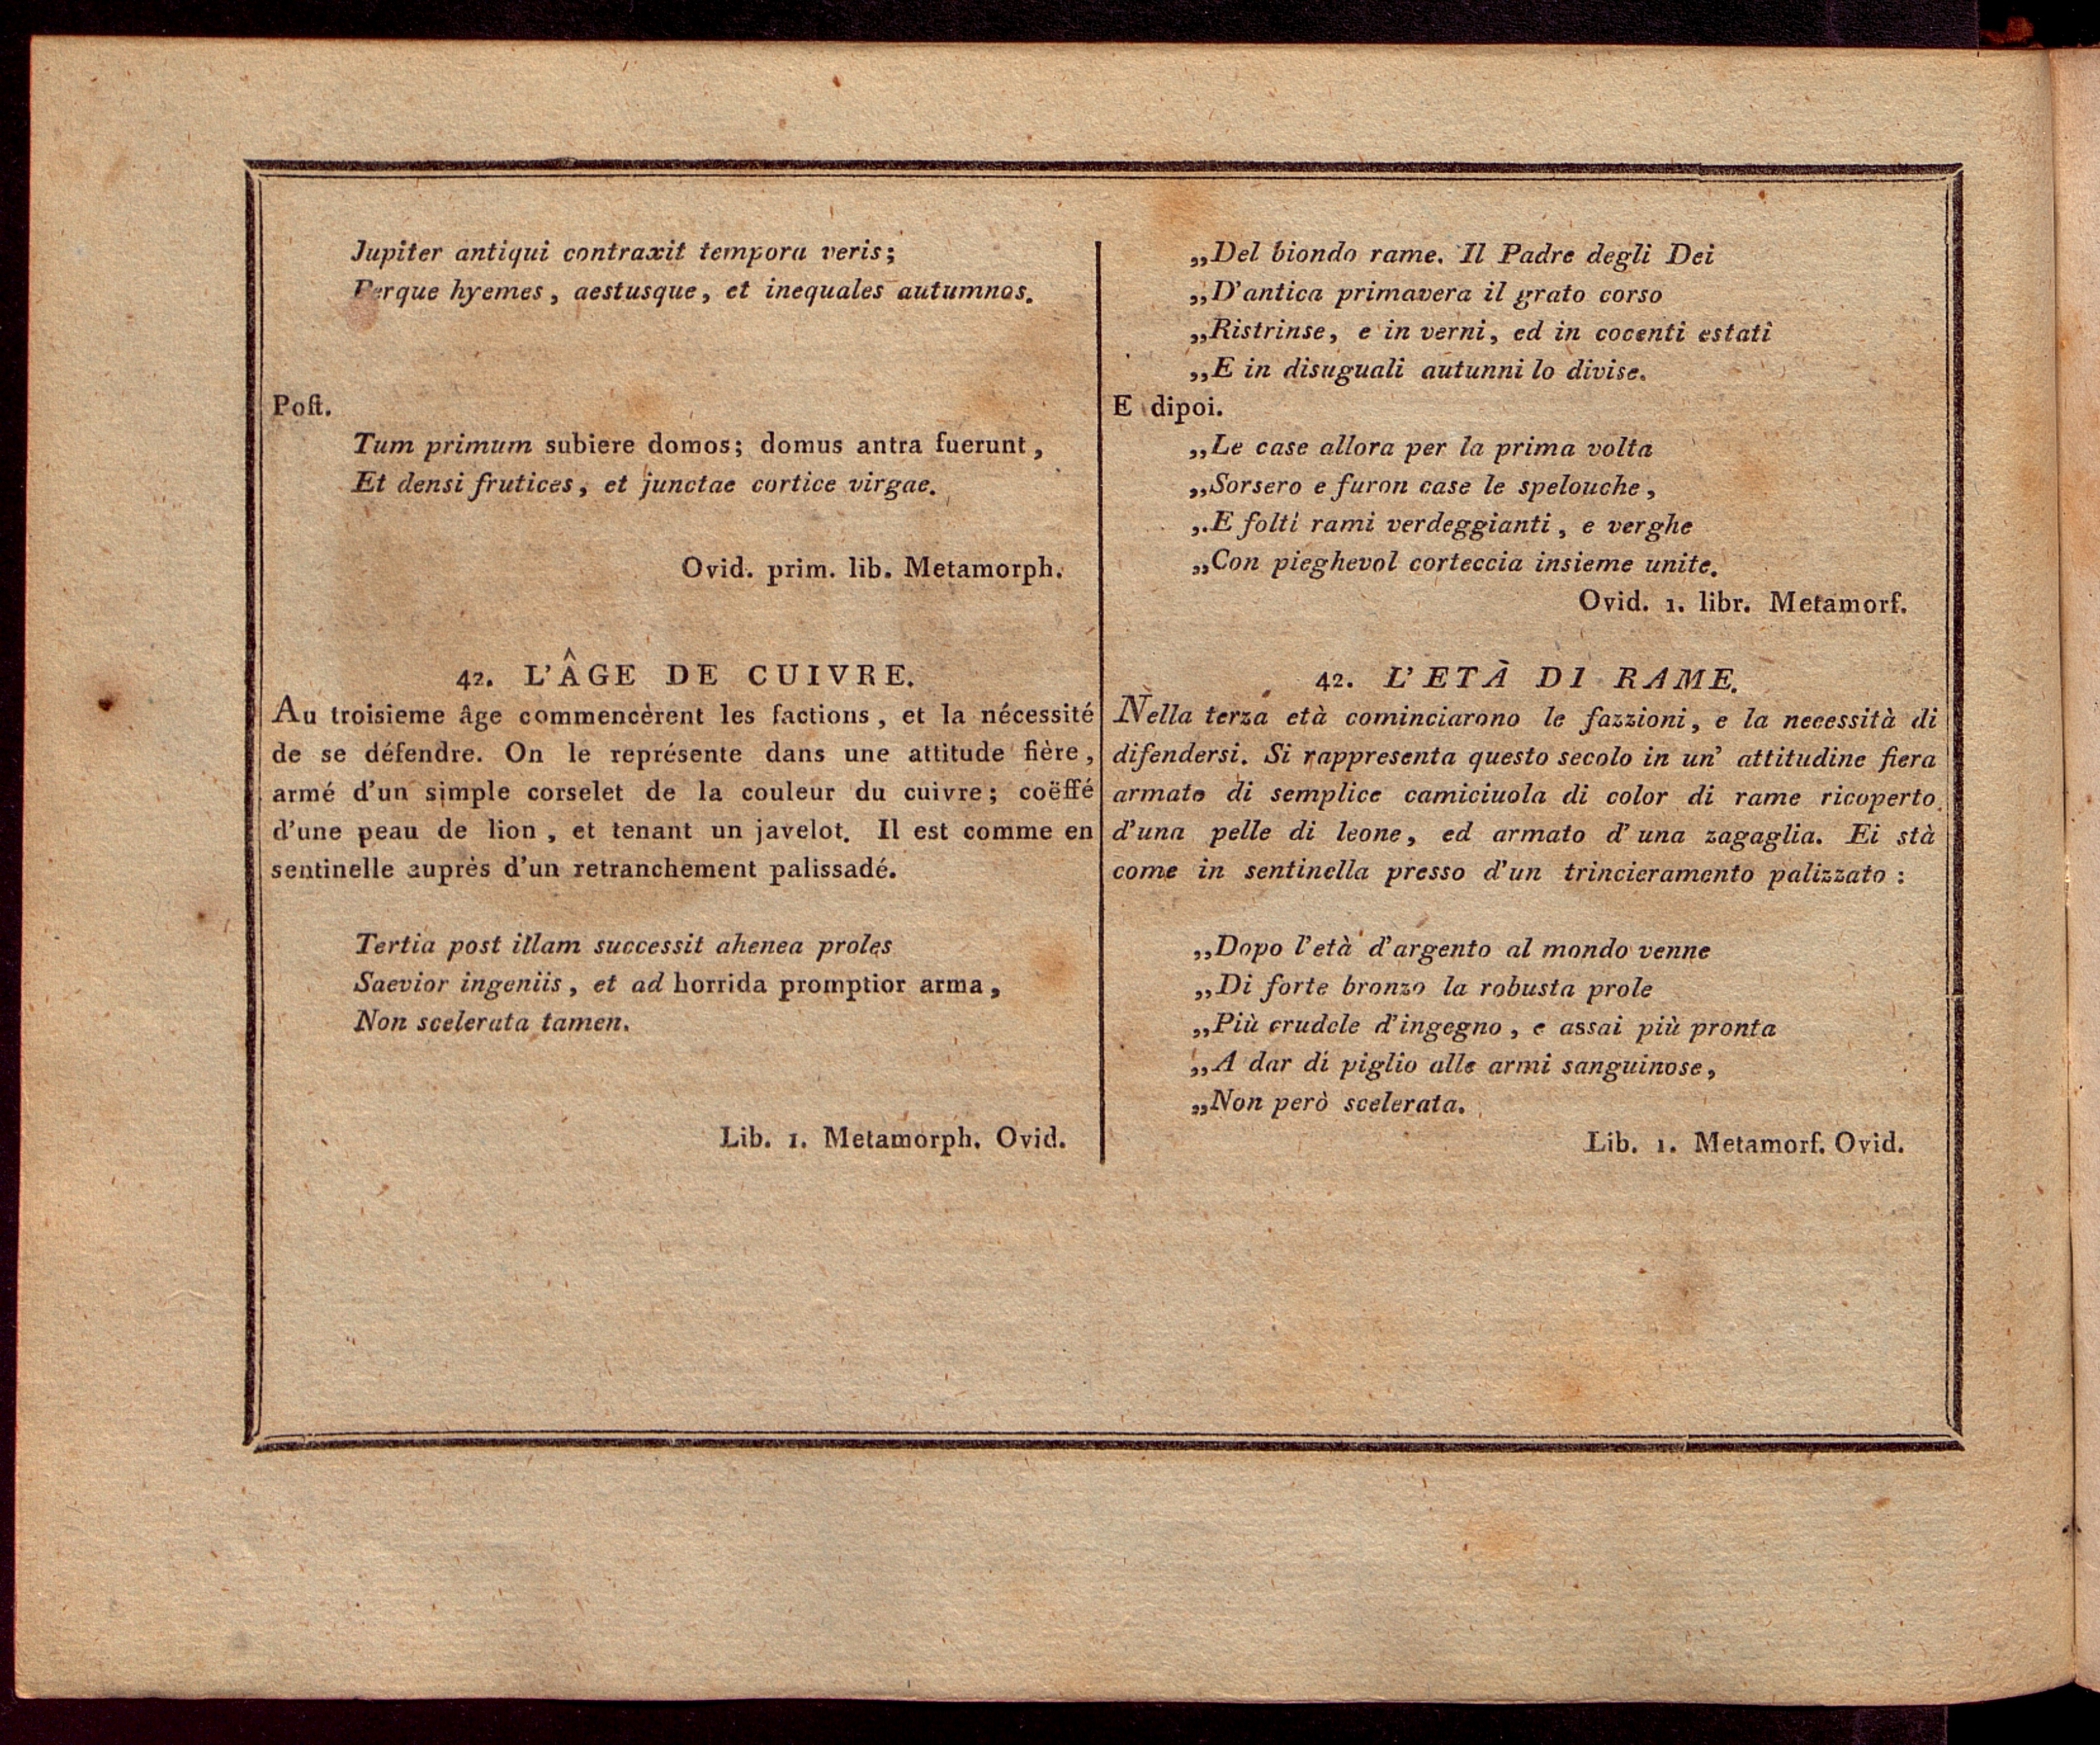 Jupiter antiqui contraxit tempora veris;
Perque hyemes, aestusque, et inequales autumnos.
Poſt.
Tum primum subiere domos; domus antra fuerunt,
Et densi frutices, et junctae cortice virgae.
Ovid. prim. lib. Metamorph.
42. L'ÂGE DE CUIVRE.
Au troisieme âge commencèrent les factions, et la nécessité
de se défendre. On le représente dans une attitude fière,
armé d'un simple corselet de la couleur du cuivre; coëffé
d'une peau de lion, et tenant un javelot. Il est comme en
sentinelle auprès d'un retranchement palissadé.
Tertia post illam successit ahenea proles
Saevior ingeniis, et ad horrida promptior arma,
Non scelerata tamen.
Lib. 1. Metamorph. Ovid.
„Del biondo rame. Il Padre degli Dei
„D'antica primavera il grato corso
„Ristrinse, e in verni, ed in cocenti estati
„E in disuguali autunni lo divise.
E dipoi.
„Le case allora per la prima volta
„Sorsero e furon case le spelouche,
,.E folti rami verdeggianti, e verghe
„Con pieghevol corteccia insieme unite.
Ovid. 1. libr. Metamorf.
42. L'ETÀ DI RAME.
Nella terza età cominciarono le fazzioni, e la necessità di
difendersi. Si rappresenta questo secolo in un' attitudine fiera
armato di semplice camiciuola di color di rame ricoperto
d'una pelle di leone, ed armato d'una zagaglia. Ei stà
come in sentinella presso d'un trincieramento palizzato:
„Dopo l'età d'argento al mondo venne
„Di forte bronzo la robusta prole
„Più crudele d'ingegno, e assai più pronta
„A dar di piglio alle armi sanguinose,
„Non però scelerata.
Lib. 1. Metamorf. Ovid.